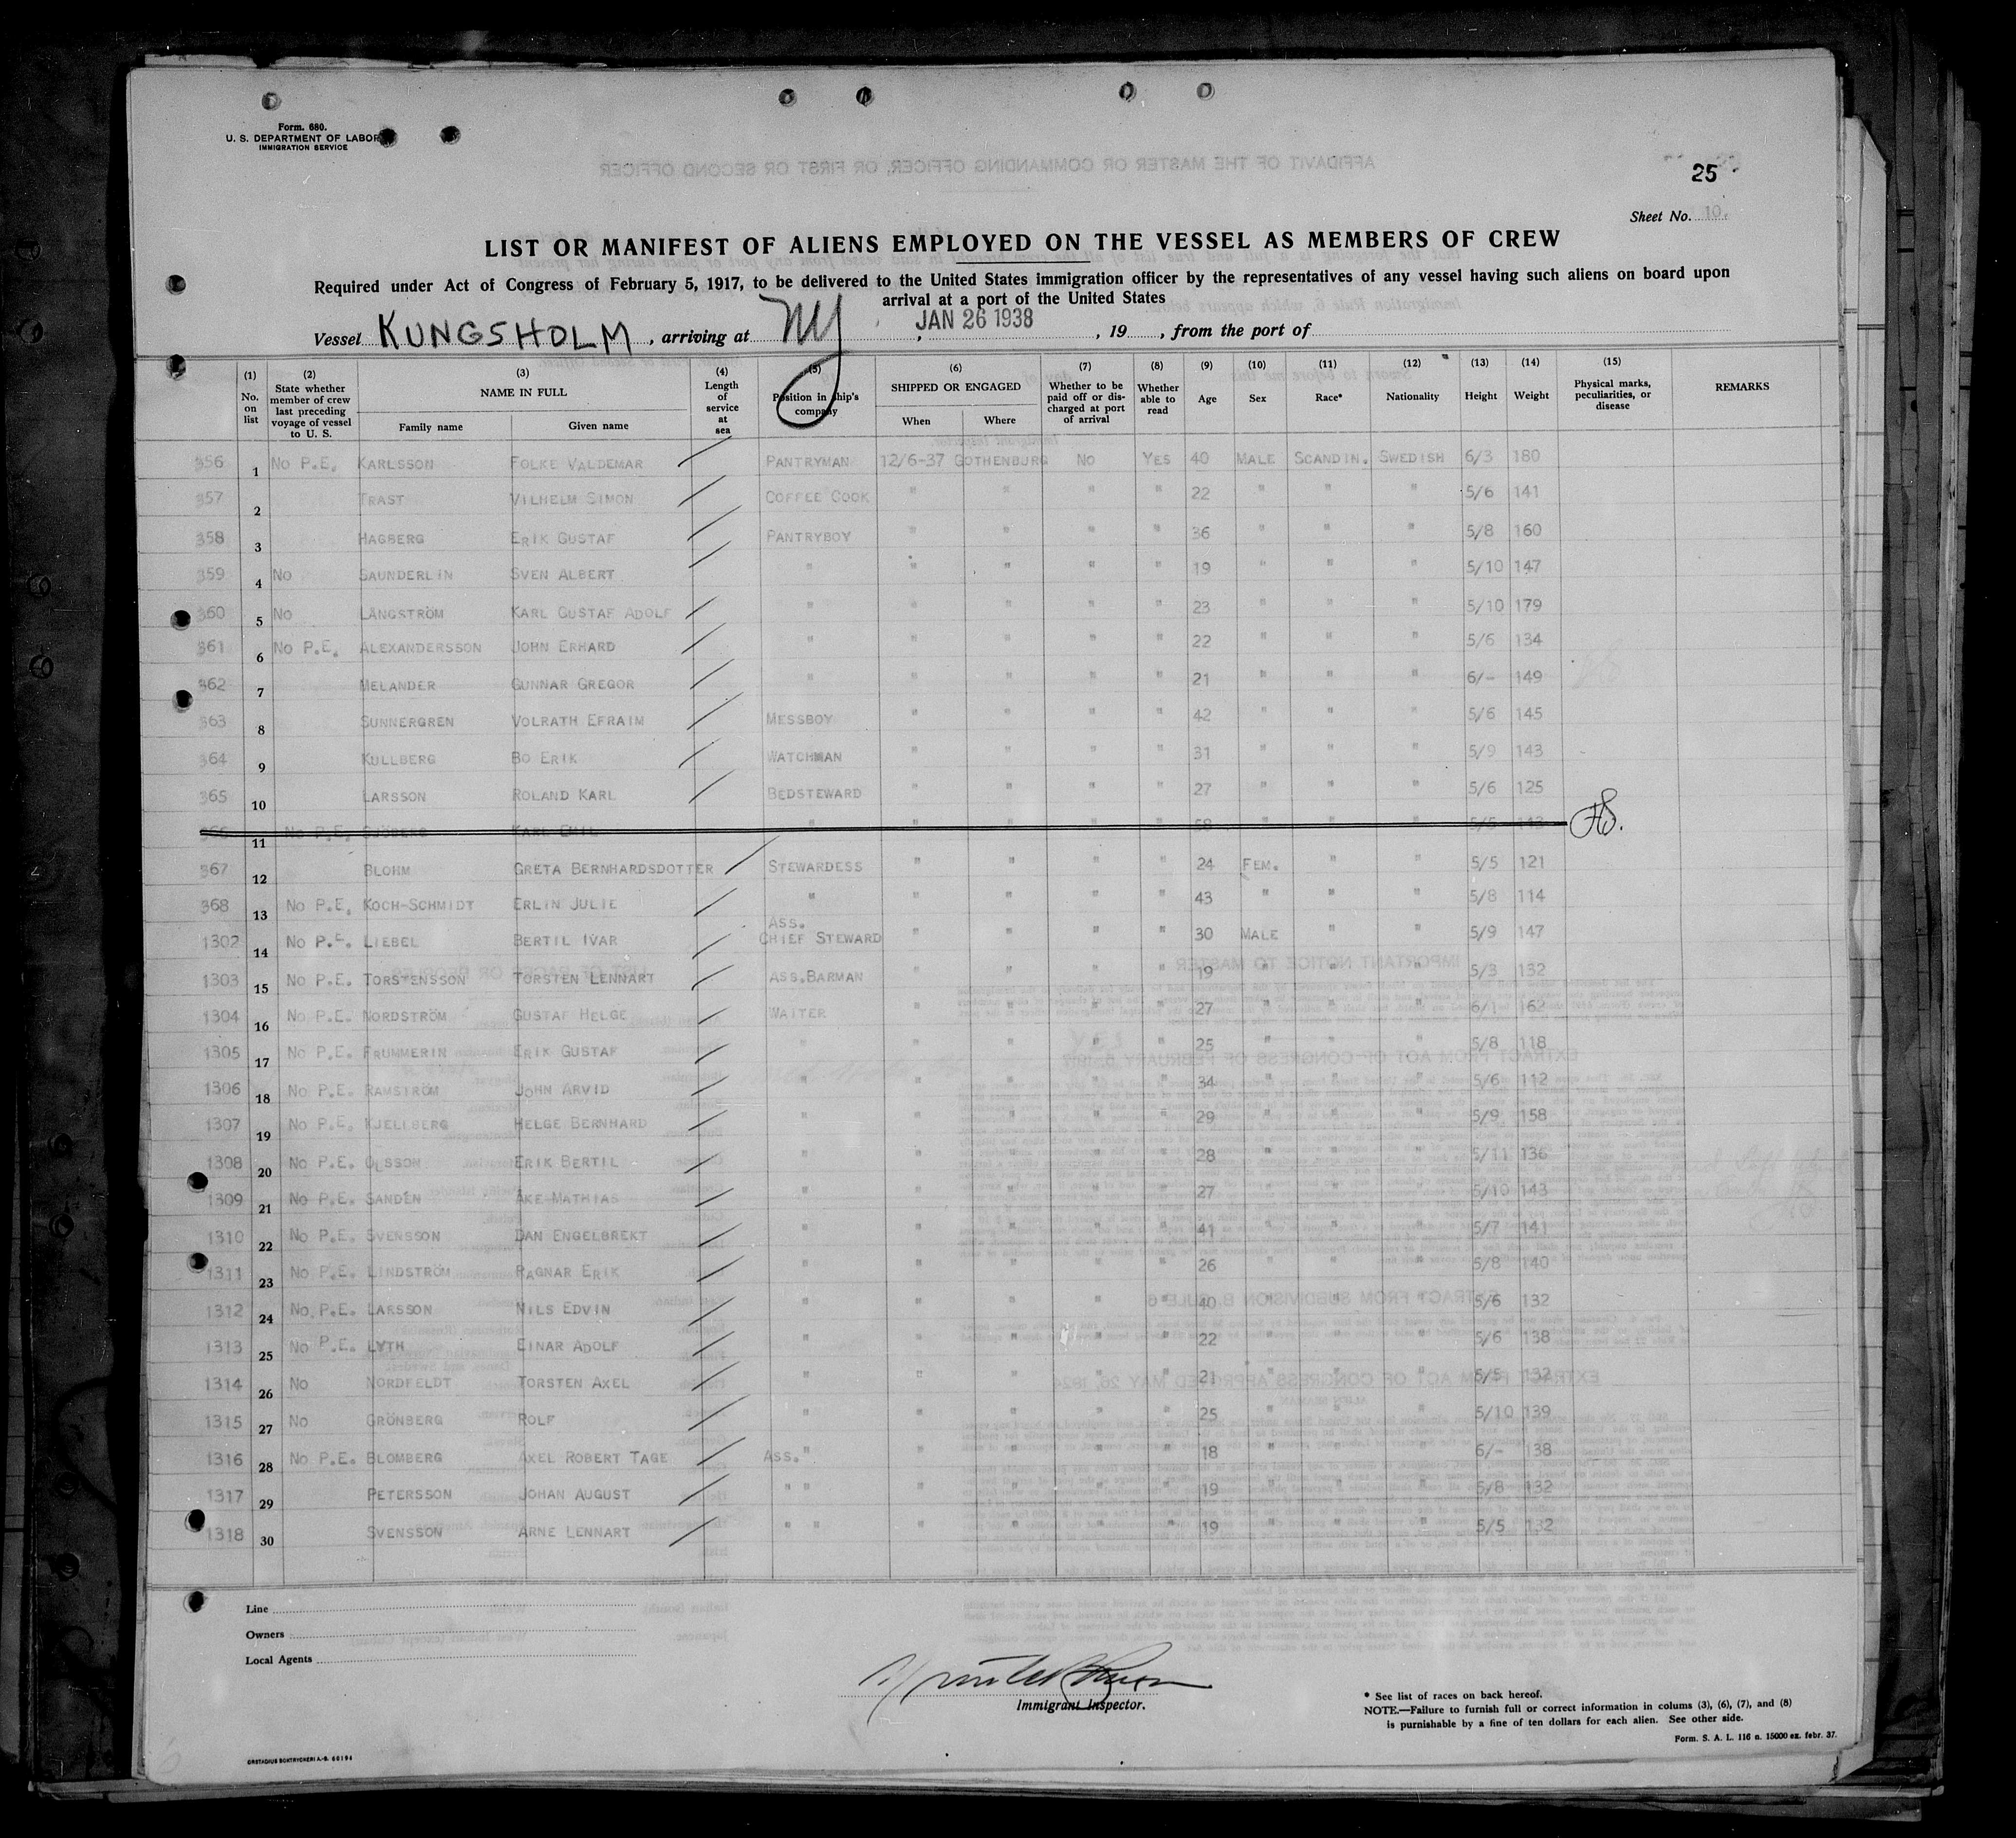 Form. 680.
U. S. DEPARTMENT OF LABOR
IMMIGRATION SERVICE
25
Sheet No. 10.
LIST OR MANIFEST OF ALIENS EMPLOYED ON THE VESSEL AS MEMBERS OF CREW
Required under Act of Congress of February 5, 1917, to be delivered to the United States immigration officer by the representatives of any vessel having such aliens on board upon
arrival at a port of the United States
Vessel KUNGSHOLM, arriving at NY, JAN 26 1938, 19, from the port of
(1) No. on list (2) State whether member of crew last preceding voyage of vessel to U. S. (3) NAME IN FULL Family name Given name (4) Length of service at sea (5) Position in ship's company (6) SHIPPED OR ENGAGED When Where (7) Whether to be paid off or discharged at port of arrival (8) Whether able to read (9) Age (10) Sex (11) Race* (12) Nationality (13) Height (14) Weight (15) Physical marks, peculiarities, or disease REMARKS
356 1 No P.E. KARLSSON FOLKE VALDEMAR / PANTRYMAN 12/6-37 GOTHENBURG NO YES 40 MALE SCANDIN. SWEDISH 6/3 180
357 2 TRAST VILHELM SIMON / COFFEE COOK " " " " 22 " " " 5/6 141
358 3 HAGBERG ERIK GUSTAF / PANTRYBOY " " " " 36 " " " 5/8 160
359 4 NO SAUNDERLIN SVEN ALBERT / " " " " " 19 " " " 5/10 147
360 5 NO LÅNGSTRÖM KARL GUSTAF ADOLF / " " " " " 23 " " " 5/10 179
361 6 NO P.E. ALEXANDERSSON JOHN ERHARD / " " " " " 22 " " " 5/6 134
362 7 MELANDER GUNNAR GREGOR / " " " " " 21 " " " 6/- 149
363 8 SUNNERGREN VOLRATH EFRAIM / MESSBOY " " " " 42 " " " 5/6 145
364 9 KULLBERG BO ERIK / WATCHMAN " " " " 31 " " " 5/9 143
365 10 LARSSON ROLAND KARL / BEDSTEWARD " " " " 27 " " " 5/6 125
366 11 NO P.E. SJÖBERG KARL EMIL " " " " " 58 " " " 5/5 143
367 12 BLOHM GRETA BERNHARDSDOTTER / STEWARDESS " " " " 24 FEM. " " 5/5 121
368 13 NO P.E. KOCH-SCHMIDT ERLIN JULIE / " " " " " 43 " " " 5/8 114
1302 14 NO P.E. LIEBEL BERTIL IVAR / ASS. CHIEF STEWARD " " " " 30 MALE " " 5/9 147
1303 15 NO P.E. TORSTENSSON TORSTEN LENNART / ASS.BARMAN " " " " 19 " " " 5/3 132
1304 16 NO P.E. NORDSTRÖM GUSTAF HELGE / WAITER " " " " 27 " " " 6/1 162
1305 17 NO P.E. FRUMMERIN ERIK GUSTAF / " " " " " 25 " " " 5/8 118
1306 18 NO P.E. RAMSTRÖM JOHN ARVID / " " " " " 34 " " " 5/6 112
1307 19 NO P.E. KJELLBERG HELGE BERNHARD / " " " " " 29 " " " 5/9 158
1308 20 NO P.E. OLSSON ERIK BERTIL / " " " " " 28 " " " 5/11 136
1309 21 NO P.E. SANDÉN ÅKE MATHIAS / " " " " " 27 " " " 5/10 143
1310 22 NO P.E. SVENSSON DAN ENGELBREKT / " " " " " 41 " " " 5/7 141
1311 23 NO P.E. LINDSTRÖM RAGNAR ERIK / " " " " " 26 " " " 5/8 140
1312 24 NO P.E. LARSSON NILS EDVIN / " " " " " 40 " " " 5/6 132
1313 25 NO P.E. LYTH EINAR ADOLF / " " " " " 22 " " " 5/6 138
1314 26 NO NORDFELDT TORSTEN AXEL / " " " " " 21 " " " 5/5 132
1315 27 NO GRÖNBERG ROLF / " " " " " 25 " " " 5/10 139
1316 28 NO P.E. BLOMBERG AXEL ROBERT TAGE / ASS. " " " " " 18 " " " 6/- 138
1317 29 PETERSSON JOHAN AUGUST / " " " " " " 19 " " " 5/8 132
1318 30 SVENSSON ARNE LENNART / " " " " " " 19 " " " 5/5 132
Line
Owners
Local Agents
Immigrant Inspector.
* See list of races on back hereof.
NOTE.—Failure to furnish full or correct information in colums (3), (6), (7), and (8)
is punishable by a fine of ten dollars for each alien. See other side.
Form. S. A. L. 116 n. 15000 ex. febr. 37.
ORSTADIUS BOKTRYCKERI A.-B. 66194